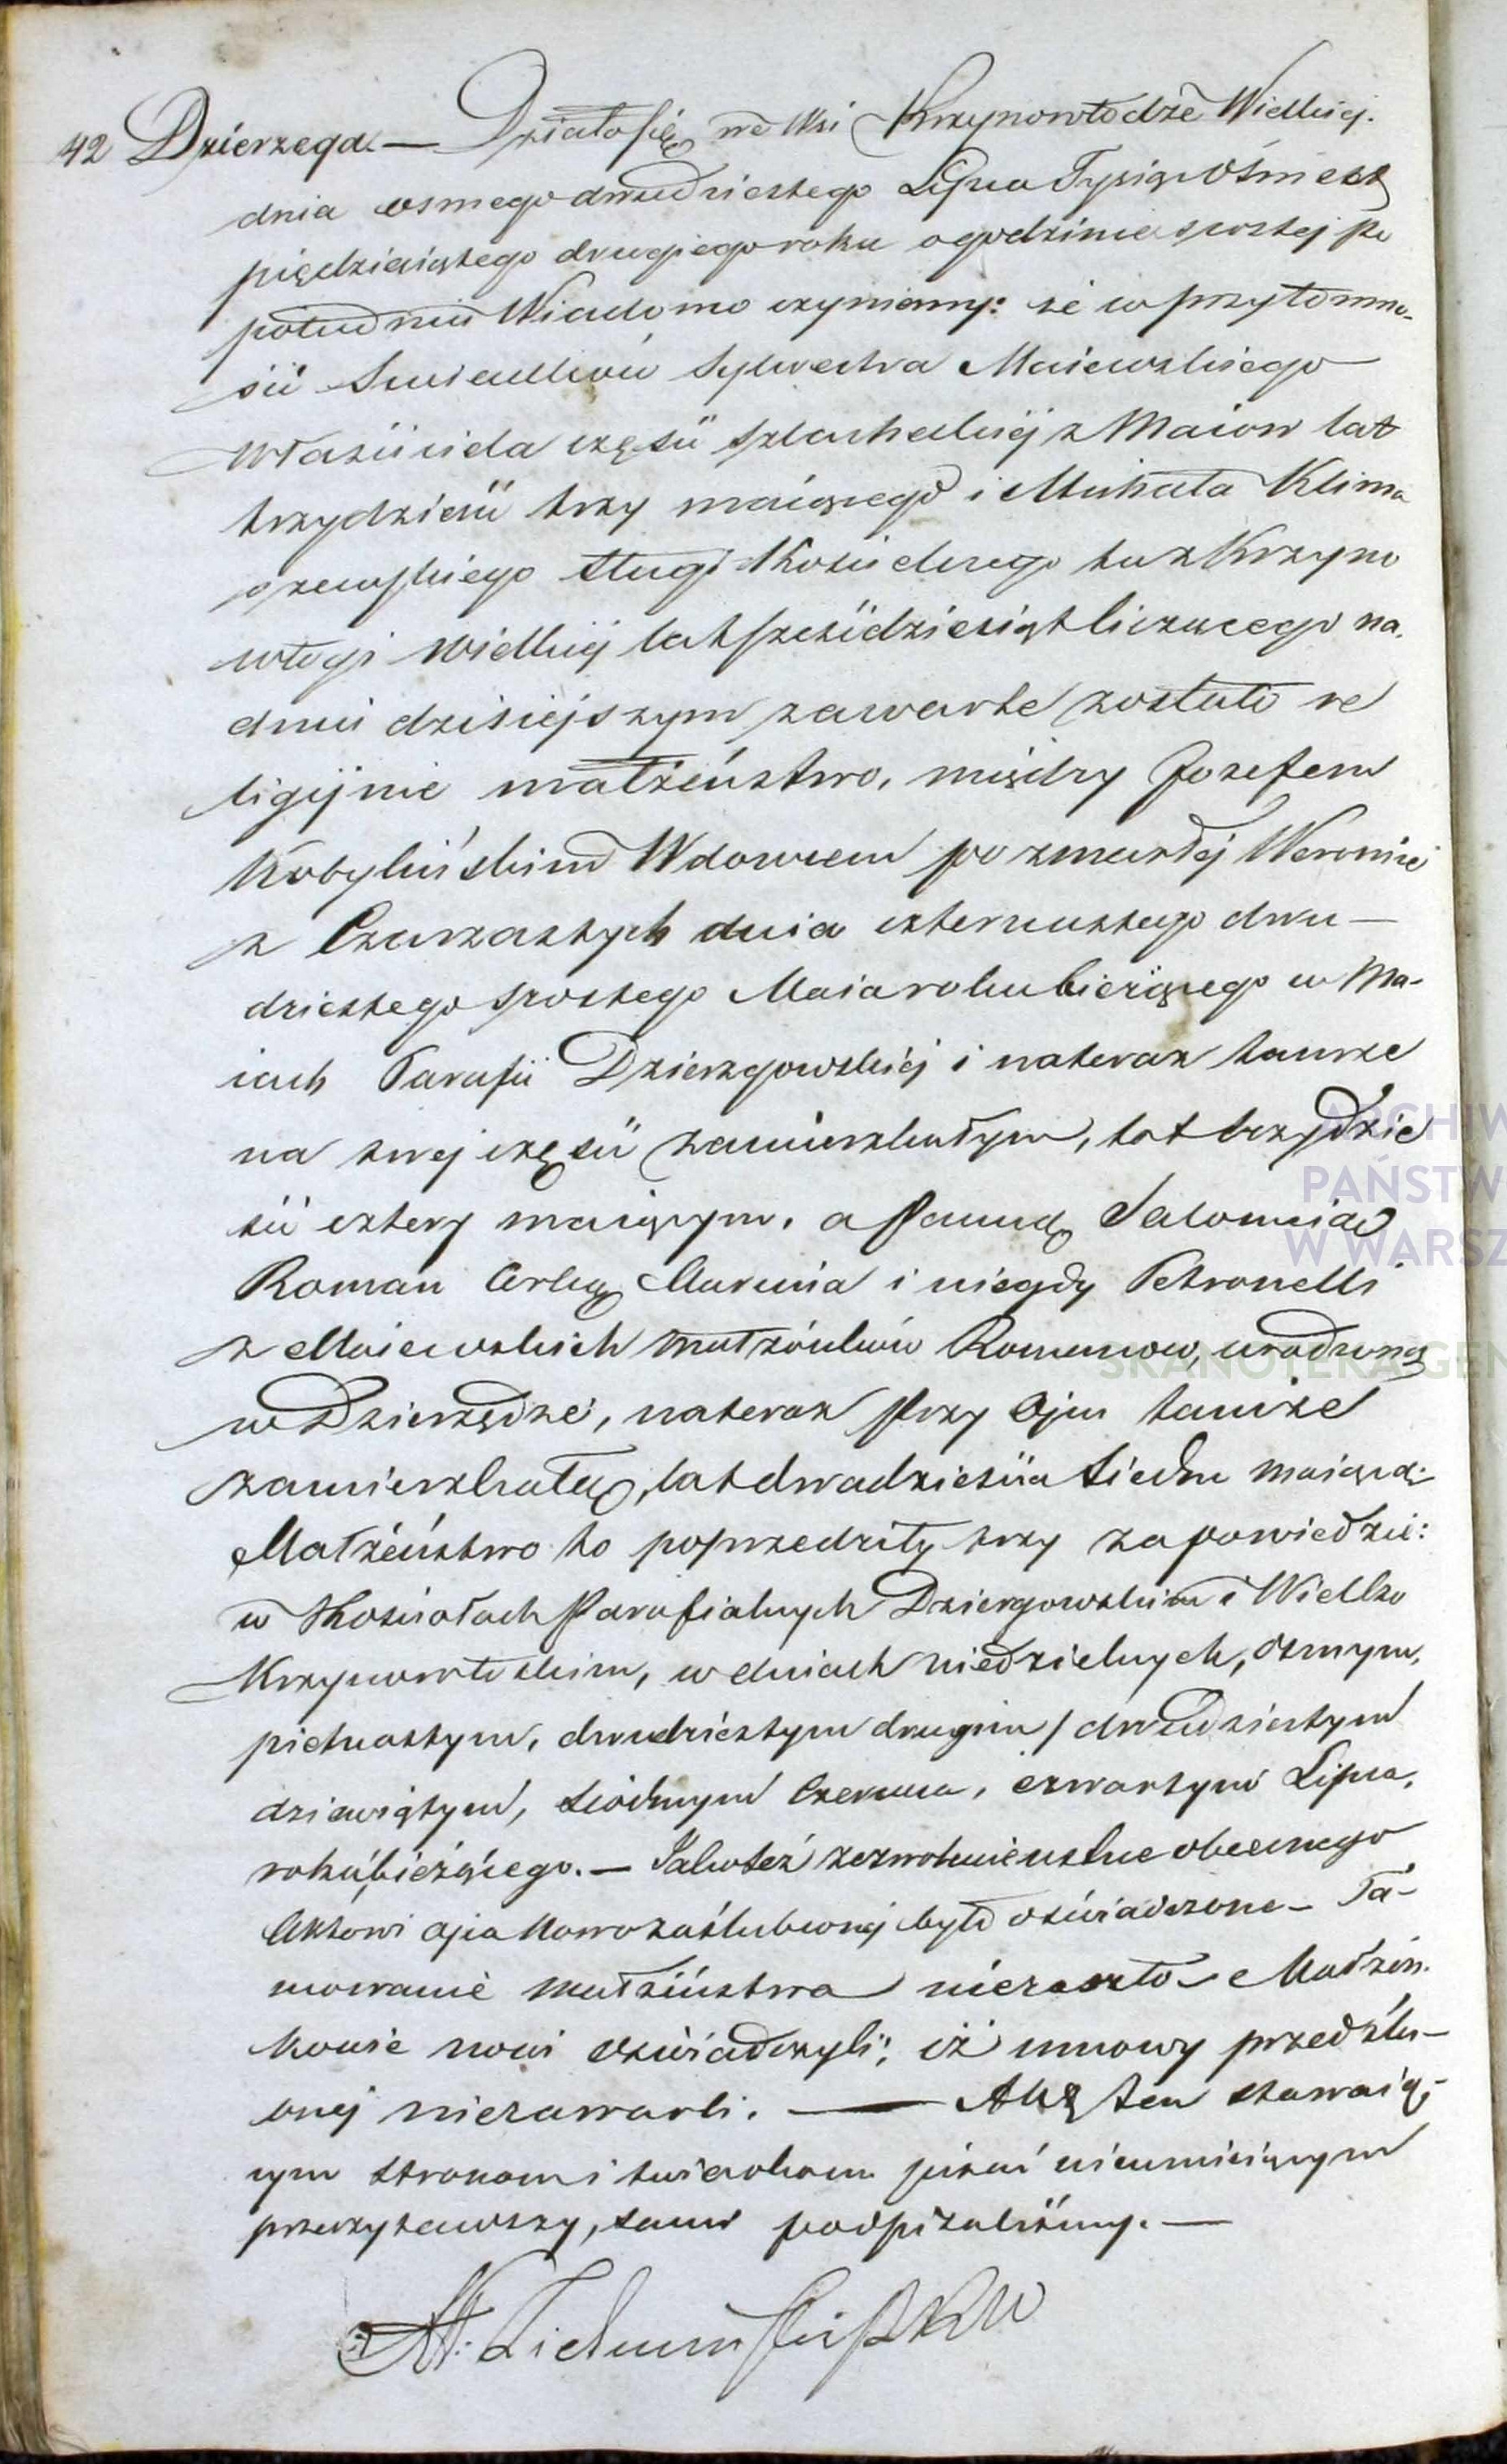 42 Dzierzega. — Działo się we Wsi Krzynowłodze Wielkiej.
dnia osmego dwudziestego Lipca Tysiąc Ośmset
piędziesiątego drugiego roku o godzinie szostej po
południu Wiadomo czyniemy: że w przytomno-
ści Swiadków Sylwestra Maiewskiego
Właściciela części szlacheckiej z Maiow lat
trzydzieści trzy maiącego i Michała Klima
szewskiego sługi Kościelnego tu z Krzyno
włogi Wielkiej lat sześćdziesiąt liczącego na
dniu dzisiejszym zawarte zostało re
ligijnie małżeństwo, między Jozefem
Kobylińskim Wdowcem po zmarłej Weronice
z Czarzastych dnia czternastego dwu—
dziestego szostego Maia roku bieżącego w Ma-
iach Parafii Dzierzgowskiej i nateraz tamże
na swej części zamieszkałym, lat trzydzie
ści cztery maiącym, a Panną Salomeią
Roman Corką Marcina i niegdy Petronelli
z Maiewskich małżonków Romanow, urodzoną
w Dzierzędze, nateraz przy Ojcu tamże
zamieszkałą, lat dwadzieścia siedm maiącą.
Małżeństwo to poprzedziły trzy zapowiedzie:
w Kościołach Parafialnych Dziergowskim i Wielko
Krzynowłoskim, w dniach niedzielnych, osmym,
pietnastym, dwudziestym drugim / dwudziestym
dziewiątym, siódmym Czerwca, czwartym Lipca,
roku bieżącego. — Jakoteż zezwolenie ustne obecnego
Aktowi ojca Nowozaślubionej było oświadczone — Ta-
mowanie małżeństwa niezaszło — Małżon-
kowie nowi oświadczyli; iż umowy przedślu-
bnej niezawarli. — Akt ten stawaią-
cym stronom i świadkom pisać nieumieiącym
przeczytawszy, sami podpisaliśmy. —